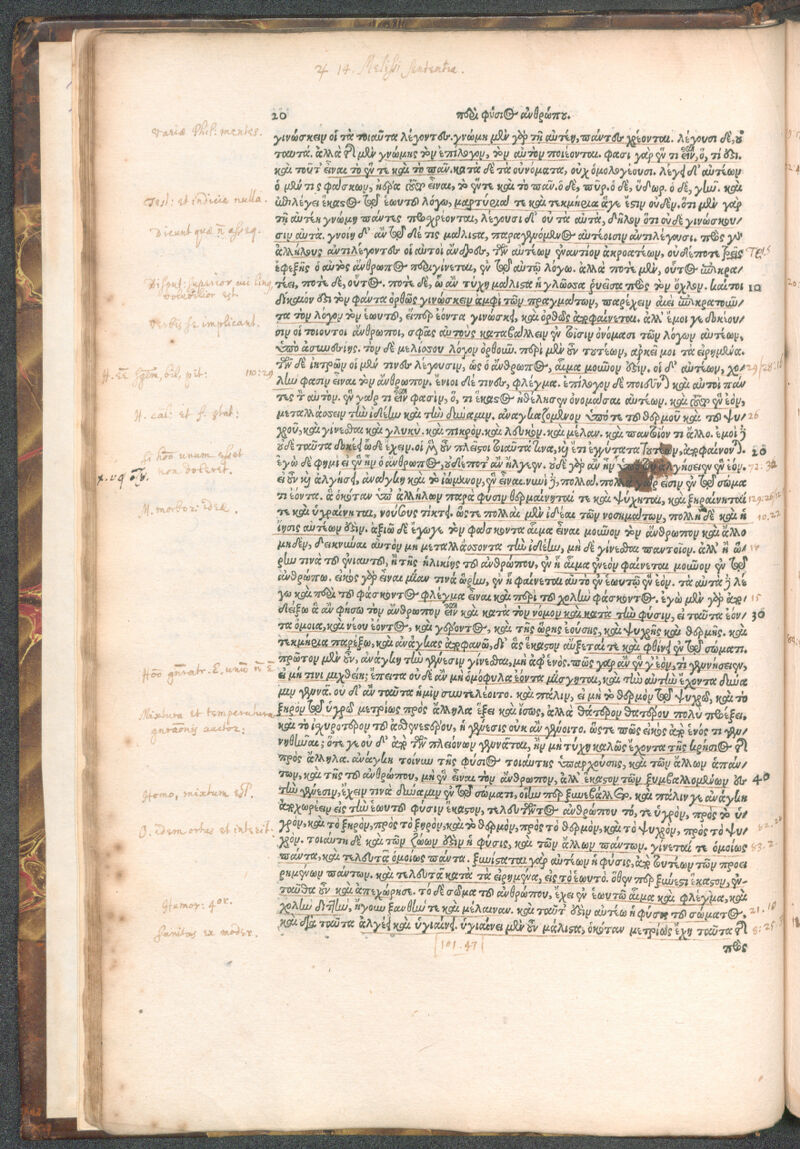 4 14. Melissi sententia.
20 περὶ φύσιος ἀνθρώπου.
variæ Phil: mentes.
γινώσκειν οἱ τὰ τοιαῦτα λέγοντες. γνώμῃ μὲν γὰρ τῇ αὐτέῃ, πάντες χρέονται. λέγουσι δὲ, οὐ
ταυτά. ἀλλὰ τῆς μὲν γνώμης τὸν ἐπίλογον, τὸν αὐτὸν ποιέονται. φασὶ γὰρ ἕν τι εἶναι, ὅ, τι ὅδε.
καὶ τοῦτ' εἶναι τὸ ἕν τε καὶ τὸ πᾶν. κατὰ δὲ τὰ οὐνόματα, οὐχ ὁμολογέουσι. λέγει δ' αὐτέων
ὁ μέν τις φάσκων, ἠέρα εἶναι, τὸ ἕν τε καὶ τὸ πᾶν. ὁ δὲ, πῦρ. ὁ δὲ, ὕδωρ. ὁ δὲ, γῆν. καὶ
Test: et indicia nulla.
ἐπιλέγει ἕκαστος τῷ ἑωυτοῦ λόγῳ, μαρτύριά τε καὶ τεκμήρια ἅ γε ἔστιν οὐδέν. ὅτι μὲν γὰρ
τῇ αὐτέῃ γνώμῃ πάντες προσχρέονται, λέγουσι δ' οὐ τὰ αὐτὰ, δῆλον ὅτι οὐδὲ γινώσκου-
Dicunt quæ
σιν αὐτά. γνοίη δ' ἄν τις μάλιστα, παραγενόμενος αὐτέοισιν ἀντιλέγουσι. πρὸς γὰρ
ἀλλήλους ἀντιλέγοντες οἱ αὐτοὶ ἄνδρες, τῶν αὐτέων ἐναντίον ἀκροατέων, οὐδέποτε τρὶς
ἐφεξῆς ὁ αὐτὸς ἄνθρωπος περιγίνεται, ἐν τῷ αὐτῷ λόγῳ. ἀλλά ποτε μὲν, οὗτος ἐπικρα-
τέει, ποτὲ δὲ, οὗτος. ποτὲ δὲ, ᾧ ἂν τύχῃ μάλιστα ἡ γλῶσσα ῥυεῖσα πρὸς τὸν ὄχλον. καίτοι
10
δίκαιόν ἐστι τὸν φάντα ὀρθῶς γινώσκειν ἀμφὶ τῶν πραγμάτων, παρέχειν αἰεὶ ἐπικρατέον-
Verbis se implicant.
τα τὸν λόγον τὸν ἑωυτοῦ, εἴπερ ἐόντα γινώσκει, καὶ ὀρθῶς ἀποφαίνεται. ἀλλ' ἔμοιγε δοκέου-
σιν οἱ τοιοῦτοι ἄνθρωποι, σφᾶς αὐτοὺς καταβάλλειν ἐν τοῖσιν ὀνόμασι τῶν λόγων αὐτέων,
ὑπὸ ἀσυνεσίης. τὸν δὲ μελίσσου λόγον ὀρθοῦν. περὶ μὲν οὖν τουτέων, ἀρκεῖ μοι τὰ εἰρημένα.
τῶν δὲ ἰητρῶν οἱ μέν τινες λέγουσιν, ὡς ὁ ἄνθρωπος, αἷμα μοῦνον ἐστίν. οἱ δ' αὐτέων, χο-
110:29
λήν φασιν εἶναι τὸν ἄνθρωπον. ἔνιοι δέ τινες, φλέγμα. ἐπίλογον δὲ ποιεῦνται καὶ αὐτοὶ πάν
τες τὸν αὐτόν. ἓν γάρ τι εἶναί φασιν, ὅ, τι ἕκαστος ἠθέλησεν ὀνομάσαι αὐτέων. καὶ τοῦτο ἓν ἐὸν,
μεταλλάσσειν τὴν ἰδέην καὶ τὴν δύναμιν. ἀναγκαζόμενον ὑπό τε τοῦ θερμοῦ καὶ τοῦ ψυ- 26
H. cal: et fr. stat:
χροῦ, καὶ γίνεσθαι καὶ γλυκὺ, καὶ πικρὸν, καὶ λευκὸν, καὶ μέλαν, καὶ παντοῖόν τι ἄλλο. ἐμοὶ δ'
οὐδὲ ταῦτα δοκέει ὧδε ἔχειν. οἱ μὲν οὖν πλεῖστοι τοιαῦτά τινα, καὶ ἔτι ἐγγύτατα τουτέων, ἀποφαίνονται.
20
Si unum esset
non doleret.
ἐγὼ δέ φημι εἰ ἓν ἦν ὁ ἄνθρωπος, οὐδέποτ' ἂν ἤλγεεν. οὐδὲ γὰρ ἂν ἦν ἀλγήσειεν ἓν ἐόν.
εἰ δ' οὖν καὶ ἀλγήσει, ἀνάγκη καὶ τὸ ἰώμενον, ἓν εἶναι. νυνὶ δὲ, πολλά. πολλὰ γάρ εἰσιν ἐν τῷ σώμα
τι ἐόντα. ἃ ὁκόταν ὑπ' ἀλλήλων παρὰ φύσιν θερμαίνηταί τε καὶ ψύχηται, καὶ ξηραίνηταί
M. morbor: ideæ.
τε καὶ ὑγραίνηται, νούσους τίκτει. ὥστε πολλαὶ μὲν ἰδέαι τῶν νοσημάτων, πολλὴ δὲ καὶ ἡ
ἴησις αὐτέων ἐστίν. ἀξιῶ δὲ ἔγωγε τὸν φάσκοντα αἷμα εἶναι μοῦνον τὸν ἄνθρωπον καὶ ἄλλο
μηδὲν, δεικνύναι αὐτὸν μὴ μεταλλάσσοντα τὴν ἰδέην, μηδὲ γίνεσθαι παντοῖον. ἀλλ' ἢ ὥ-
ρην τινὰ τοῦ ἐνιαυτοῦ, ἢ τῆς ἡλικίης τοῦ ἀνθρώπου, ἐν ᾗ αἷμα ἐνεὸν φαίνεται μοῦνον ἐν τῷ
ἀνθρώπῳ. εἰκὸς γάρ ἐστιν εἶναι μίαν τινὰ ὥρην, ἐν ᾗ φαίνεται αὐτὸ ἐν ἑωυτῷ ἓν ἐόν. τὰ αὐτὰ δὲ λέ
γω καὶ περὶ τοῦ φάσκοντος φλέγμα εἶναι καὶ περὶ τοῦ χολὴν φάσκοντος. ἐγὼ μὲν γὰρ ἀπο
δείξω ἃ ἂν φήσω τὸν ἄνθρωπον εἶναι καὶ κατὰ τὸν νόμον καὶ κατὰ τὴν φύσιν, ἀεὶ ταῦτα ἐόν-
30
τα ὅμοια, καὶ νέου ἐόντος, καὶ γέροντος, καὶ τῆς ὥρης ἐούσης, καὶ ψυχρῆς καὶ θερμῆς. καὶ
τεκμήρια παρέξω, καὶ ἀνάγκας ἀποφανῶ, δι' ἃς ἕκαστον αὔξεταί τε καὶ φθίνει ἐν τῷ σώματι.
πρῶτον μὲν οὖν, ἀνάγκη τὴν γένεσιν γίνεσθαι, μὴ ἀφ' ἑνός. πῶς γὰρ ἂν ἕν γ' ἐὸν, τι γεννήσειεν,
εἰ μή τινι μιχθείη; ἔπειτα οὐδὲ ἂν μὴ ὁμόφυλα ἐόντα μίσγηται, καὶ τὴν αὐτὴν ἔχοντα δύνα
μιν γεννᾷ. οὐδ' ἂν ταῦτα ἡμῖν συντελέοιτο. καὶ πάλιν, εἰ μὴ τὸ θερμὸν τῷ ψυχρῷ, καὶ τὸ
Mixtura et temperatura
ξηρὸν τῷ ὑγρῷ μετρίως πρὸς ἄλληλα ἕξει καὶ ἴσως, ἀλλὰ θάτερον θατέρου πολὺ προέξει,
καὶ τὸ ἰσχυρότερον τοῦ ἀσθενεστέρου, ἡ γένεσις οὐκ ἂν γένοιτο. ὥστε πῶς εἰκὸς ἀπὸ ἑνός τι γεν-
νηθῆναι; ὅτε γε οὐδ' ἀπὸ τῶν πλειόνων γεννᾶται, ἢν μὴ τύχῃ καλῶς ἔχοντα τῆς κρήσιος τῆς
πρὸς ἄλληλα. ἀνάγκη τοίνυν τῆς φύσιος τοιαύτης ὑπαρχούσης, καὶ τῶν ἄλλων ἁπάν-
των, καὶ τῆς τοῦ ἀνθρώπου, μὴ ἓν εἶναι τὸν ἄνθρωπον, ἀλλ' ἕκαστον τῶν ξυμβαλλομένων ἐς
40
Homo, mixtum est.
τὴν γένεσιν, ἔχειν τινὰ δύναμιν ἐν τῷ σώματι, οἵην περ ξυνεβάλλετο. καὶ πάλιν γε ἀνάγκη
ἀποχωρέειν εἰς τὴν ἑωυτοῦ φύσιν ἕκαστον, τελευτῶντος ἀνθρώπου τό, τε ὑγρὸν, πρὸς τὸ ὑ-
γρὸν, καὶ τὸ ξηρὸν, πρὸς τὸ ξηρὸν, καὶ τὸ θερμὸν, πρὸς τὸ θερμὸν, καὶ τὸ ψυχρὸν, πρὸς τὸ ψυ-
χρόν. τοιαύτη δὲ καὶ τῶν ζώων ἐστὶν ἡ φύσις, καὶ τῶν ἄλλων πάντων. γίνεταί τε ὁμοίως
πάντα, καὶ τελευτᾷ ὁμοίως πάντα. ξυνίσταται γὰρ αὐτέων ἡ φύσις, ἀπὸ τουτέων τῶν προει
ρημένων πάντων. καὶ τελευτᾷ κατὰ τὰ εἰρημένα, εἰς τὸ ἑωυτό. ὅθεν περ ξυνέστη ἕκαστον, ἐν-
ταῦθα οὖν καὶ ἀπεχώρησε. τὸ δὲ σῶμα τοῦ ἀνθρώπου, ἔχει ἐν ἑωυτῷ αἷμα καὶ φλέγμα, καὶ
Humor: 4or.
χολὴν διττὴν, ἤγουν ξανθήν τε καὶ μέλαιναν. καὶ ταῦτ' ἐστὶν αὐτέῳ ἡ φύσις τοῦ σώματος,
Sanitas ex moder.
καὶ διὰ ταῦτα ἀλγέει καὶ ὑγιαίνει. ὑγιαίνει μὲν οὖν μάλιστα, ὁκόταν μετρίως ἔχῃ ταῦτα τῆς
101.47
πρὸς